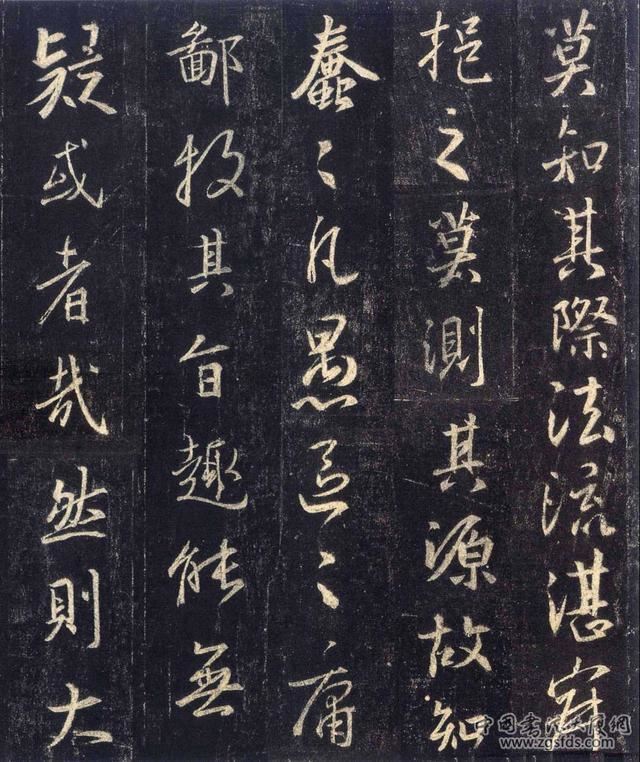 莫知其際法流湛寂
挹之莫測其源故知
蠢〻凡愚區〻庸
鄙投其旨趣能無
疑或者哉然則大
中国书法大师网
www.zgsfds.com